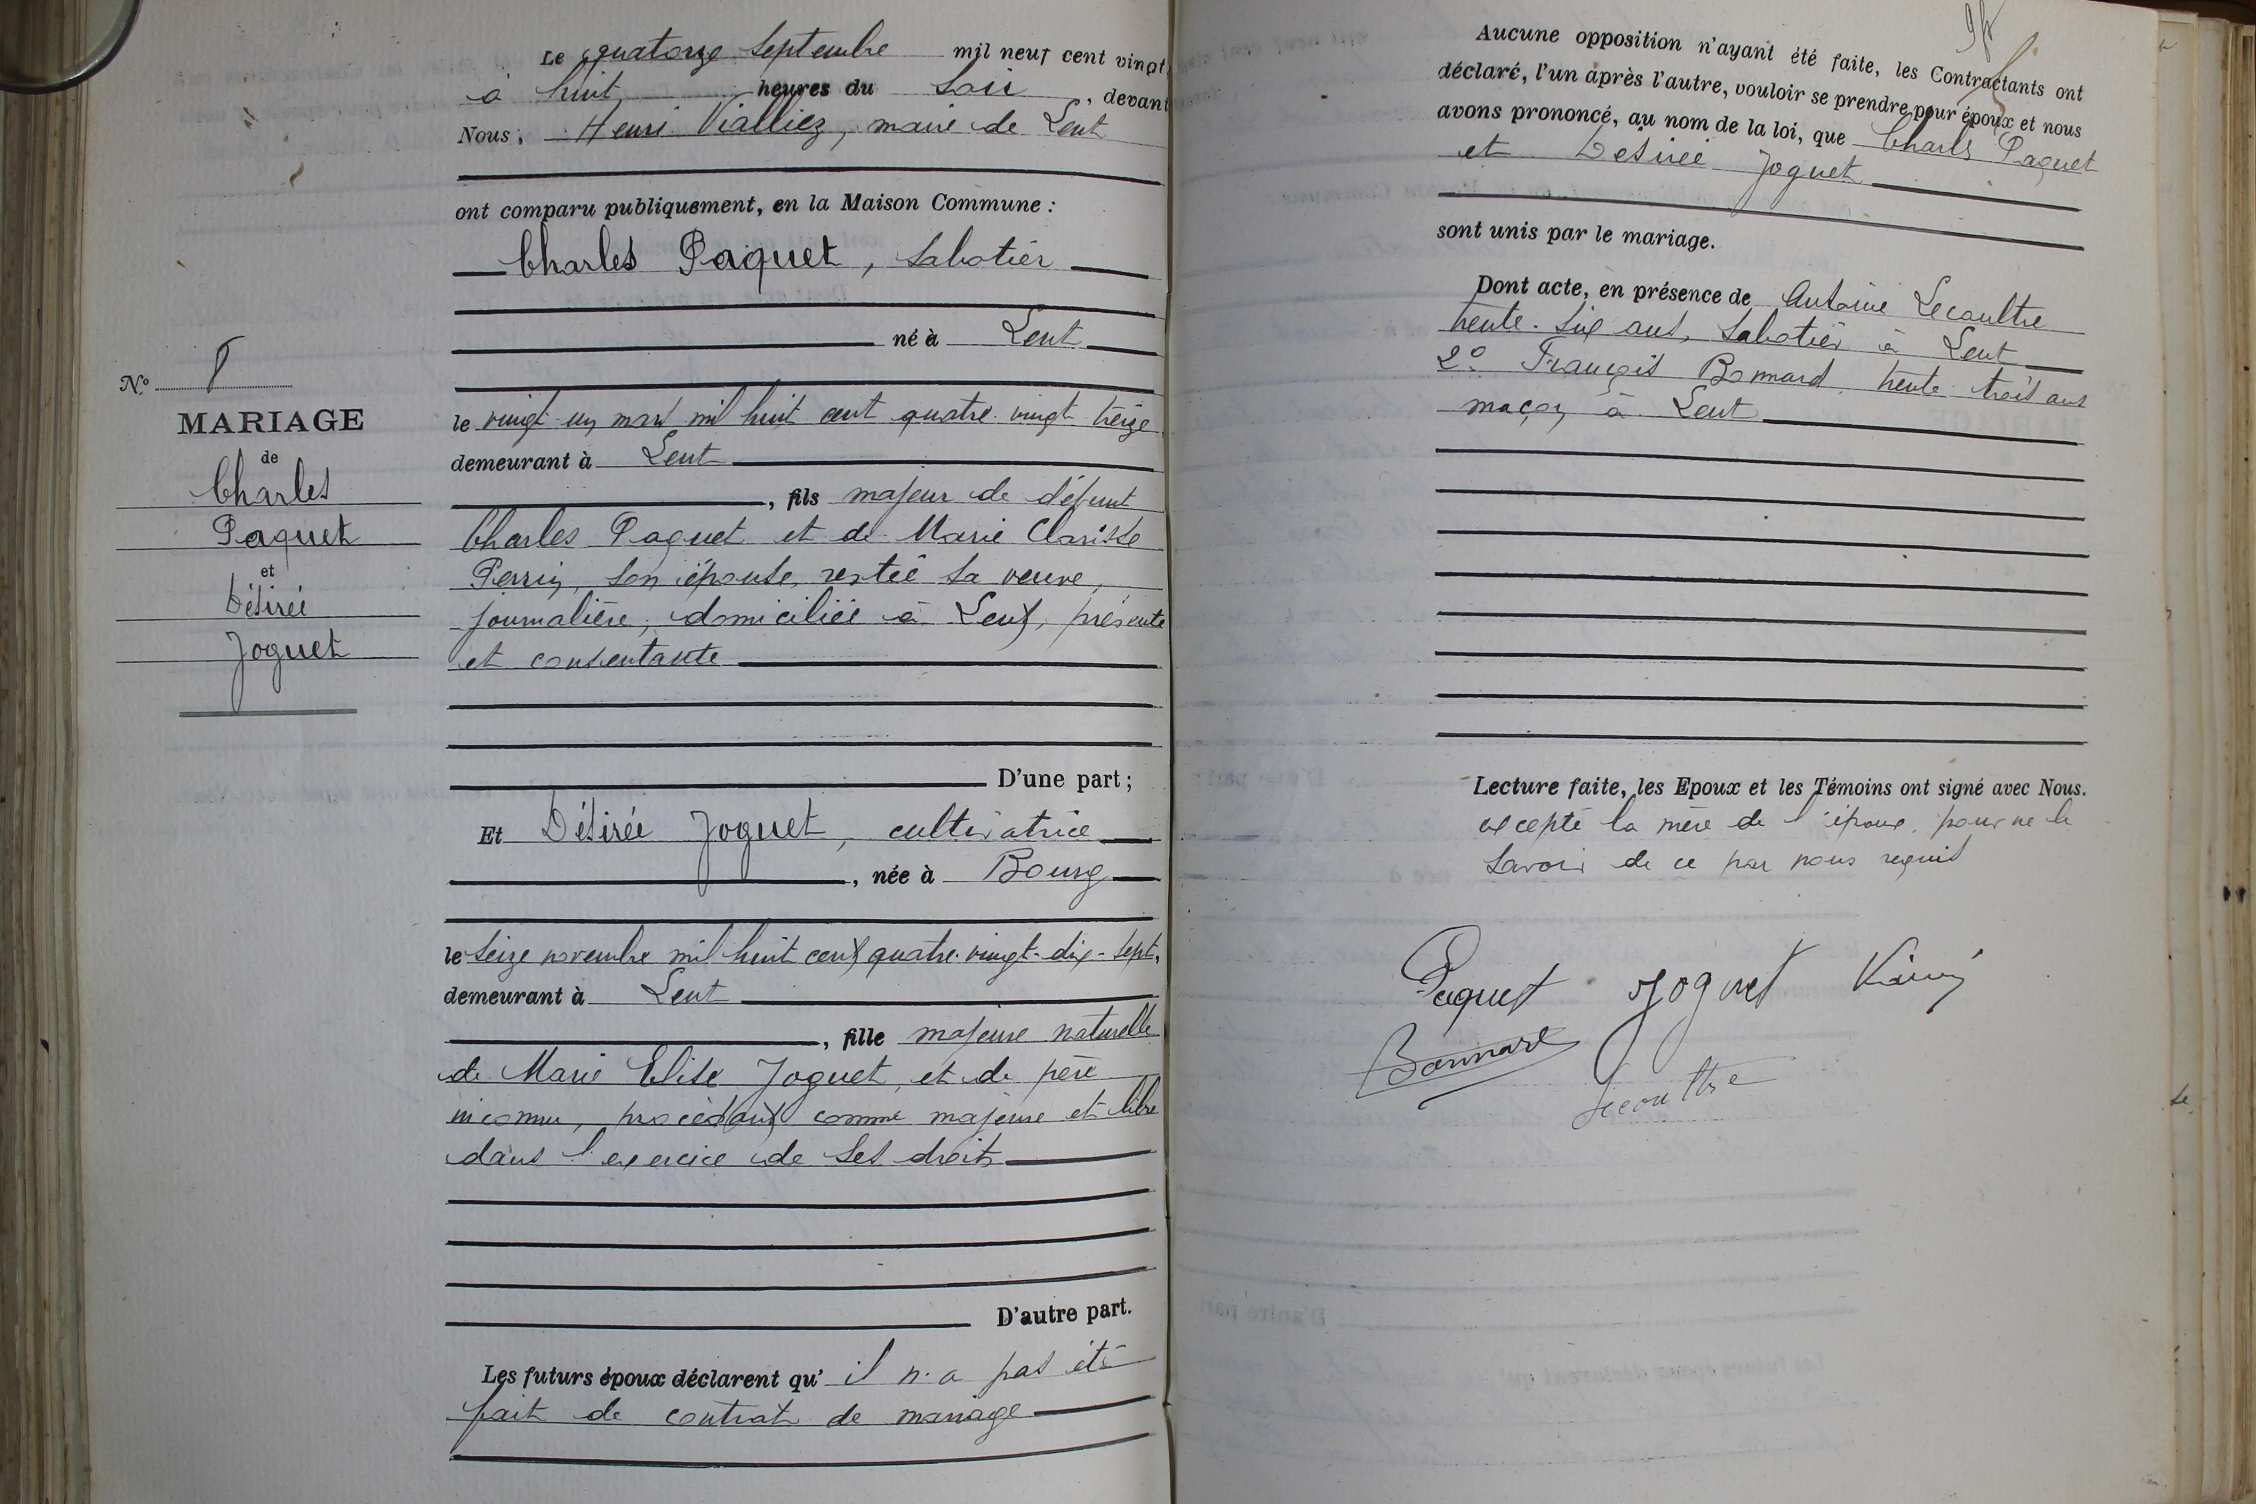 Le quatorze Septembre mil neuf cent vingt
à huit heures du Soir, devant
Nous, Henri Vialliez, maire de Lent
ont comparu publiquement, en la Maison Commune :
Charles Paquet, Sabotier
né à Lent
N.º 8
MARIAGE
de
Charles
Paquet
et
Désirée
Joguet
le vingt un mars mil huit cent quatre vingt treize
demeurant à Lent
, fils majeur de défunt
Charles Paquet et de Marie Clarisse
Perrin, son épouse, restée sa veuve,
journalière, domiciliée à Lent, présente
et consentante
D'une part ;
Et Désirée Joguet, cultivatrice
, née à Bourg
le seize novembre mil huit cent quatre-vingt-dix-sept,
demeurant à Lent
, fille majeure naturelle
de Marie Elise Joguet, et de père
inconnu, procédant comme majeure et libre
dans l'exercice de ses droits
D'autre part.
Les futurs époux déclarent qu' il n'a pas été
fait de contrat de mariage
Aucune opposition n'ayant été faite, les Contractants ont
déclaré, l'un après l'autre, vouloir se prendre pour époux et nous
avons prononcé, au nom de la loi, que Charles Paquet
et Désirée Joguet
sont unis par le mariage.
Dont acte, en présence de Antoine Lecoultre
trente-six ans, Sabotier à Lent
2º François Bonnard trente trois ans
maçon à Lent
Lecture faite, les Epoux et les Témoins ont signé avec Nous.
excepté la mère de l'époux, pour ne le
savoir de ce par nous requis
Paquet Joguet
Bonnard
Lecoultre